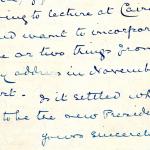 to lecture at Cair
and want to incorpor
e or two things from
y address in November
rt. Is it settled wh
to be the new Presid
Yours sincerel